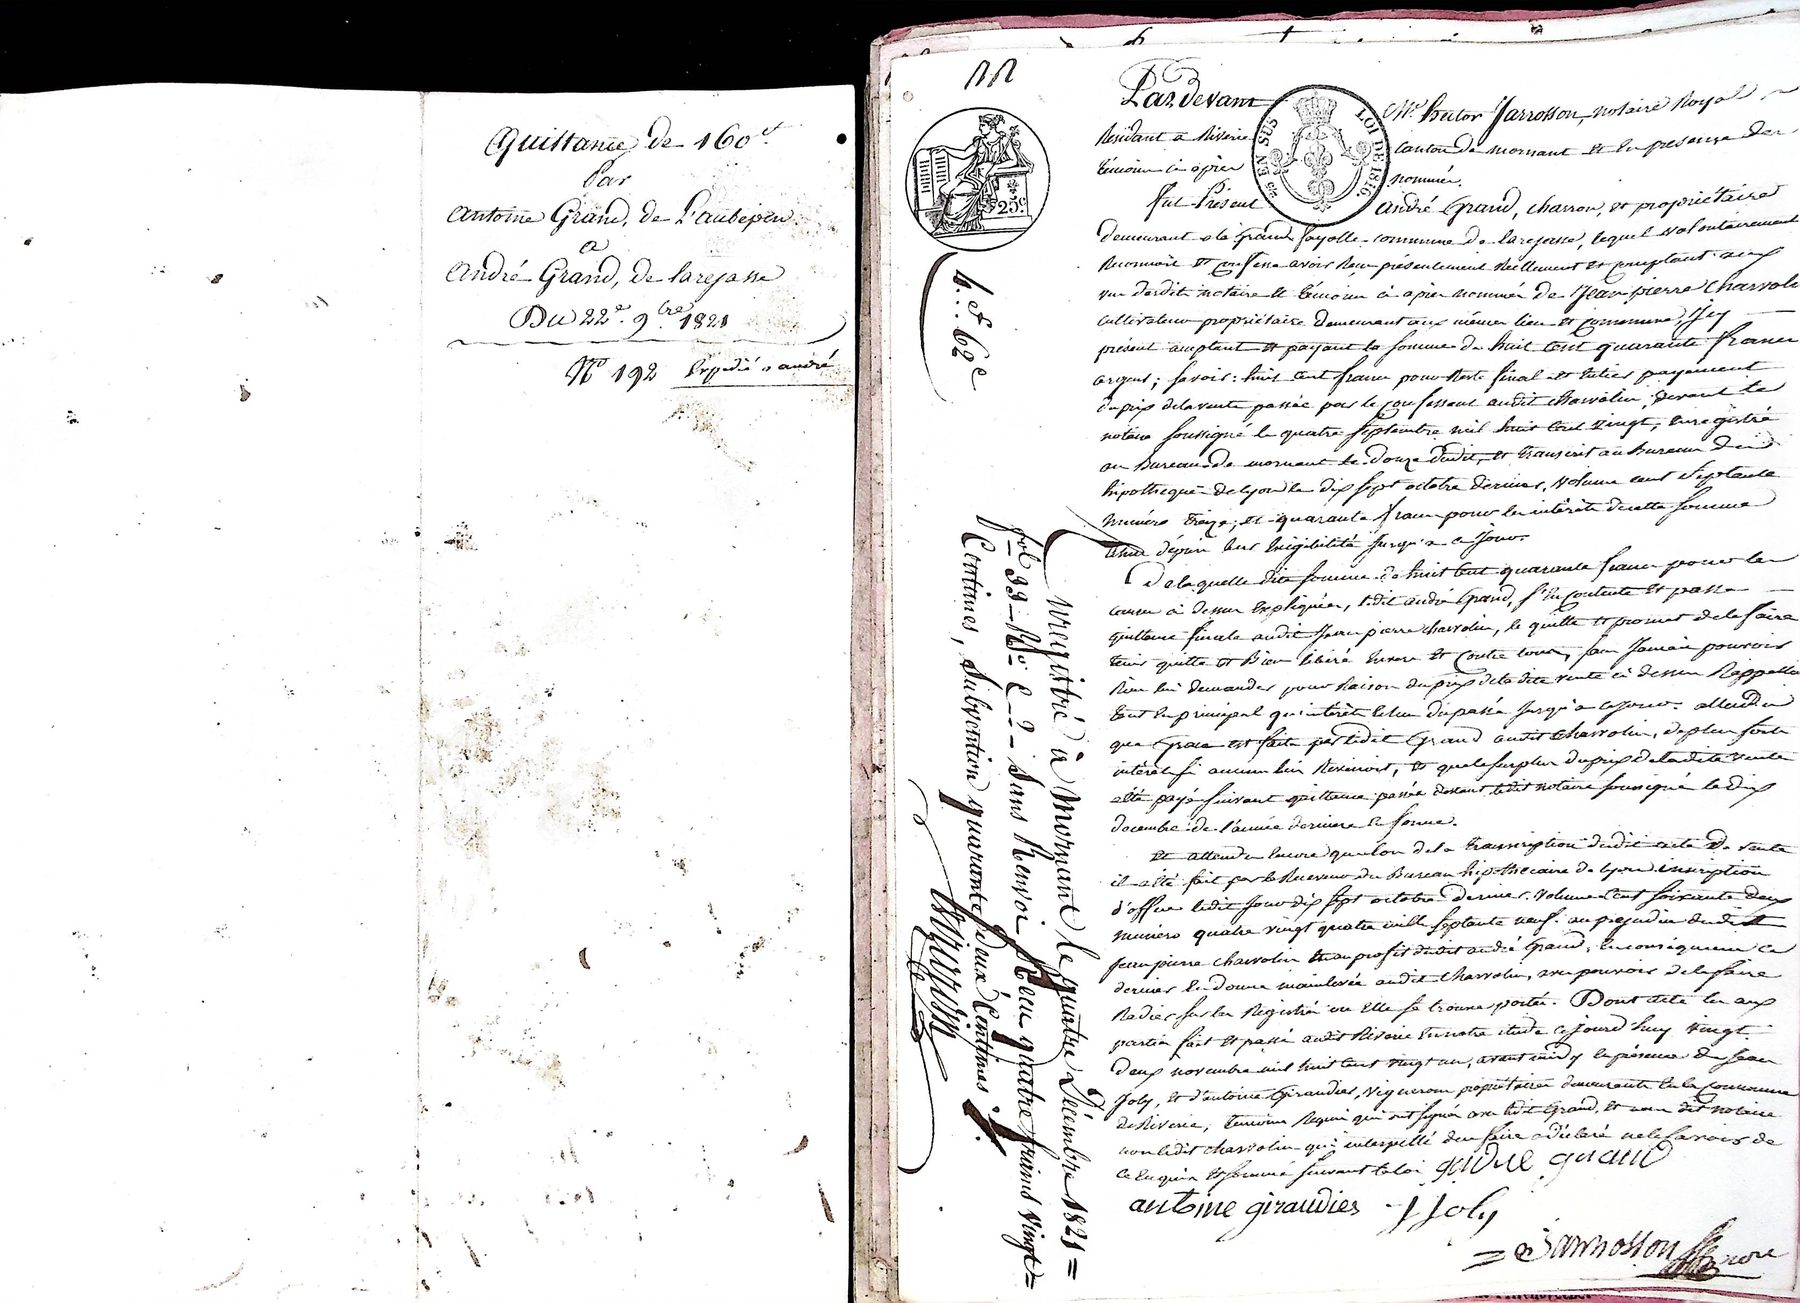 Quittance de 160 f.
Par
Antoine Grand, de Laubepin
a
André Grand, de Larejasse
Du 22e. 9bre. 1821
No 192 Expedié a andré
EN SUS
LOI DE 1816
25c
4..f 62c
Enregistré à Mornant le quatre Décembre 1821 =
fol. 99 - Ro. C. 2 - Sans Renvoi. Reçu quatre francs vingt =
Centimes, Subvention quarante deux Centimes
Pardevant Me. hector Jarrosson, notaire Royal
Residant a Riverie canton de mornant et en presence des
témoins ci après nommés.
Fut Présent André Grand, charron, et propriétaire
demeurant a la Grand fayolle commune de larejasse, lequel volontairement
Reconnait et confesse avoir Reçu présentement Réellement et comptant aux
vus desdits notaire et témoins ci après nommés de Jean pierre Charvolin
cultivateur propriétaire demeurant aux mêmes lieu et commune, Icy
présent acceptant et payant la somme de huit cent quarante francs
argent; savoir: huit cent francs pour Reste final et entier payement
du prix de la vente passée par le confessant audit charvolin, devant le
notaire soussigné le quatre septembre mil huit cent vingt, enregistré
au Bureau de mornant le douze dudit, et transcrit au Bureau des
hipothèques de lyon le dix sept octobre dernier, volume cent septante
numéro treize; et quarante francs pour les intérêts de cette somme
depuis leur exigibilité jusqu'a ce jour.
De laquelle dite somme de huit cent quarante francs pour les
causes ci dessus expliquées, ledit andré Grand, s'en contente et passe
quittance finale audit Jean pierre charvolin, le quitte et promet de le faire
tenir quitte et bien libéré envers et contre tous, sans Jamais pouvoir
Rien lui demander pour Raison du prix de la dite vente ci dessus Rappellée
tant en principal qu'intérêts du passé jusqu'a ce jour. attendu
que Grace est faite par ledit Grand audit Charvolin, de plus forts
intérêts si aucuns lui Revenoit, et que le surplus du prix de la dite vente
a été payé suivant quittance passée devant ledit notaire soussigné le dix
decembre de l'année derniere en forme.
Et attendu encore que lors de la transcription dudit acte de vente
il a été fait par le Receveur du Bureau hipothécaire de lyon inscription
d'office ledit jour dix sept octobre dernier volume cent soixante deux
numéro quatre vingt quatre mille septante neuf. au prejudice dudit
Jean pierre charvolin et au profit dudit andré Grand; En consequence ce
dernier en donne mainlevée audit Charvolin, avec pouvoir de la faire
Radier sur les Registres ou elle se trouve portée. Dont acte lu aux
parties fait et passé audit Riverie en notre étude ce jourd'huy vingt
deux novembre mil huit cent vingt un, avant midy en présence de Jean
Joly, et d'antoine Giraudier, vignerons propriétaires demeurants en la Commune
de Riverie, témoins Requis qui ont signés avec ledit Grand, et nous dit notaire
non ledit charvolin qui interpellé de le faire a déclaré ne le savoir de
ce Enquis et sommé suivant la loi andre grand
antoine giraudier J Joly
Jarrosson nore